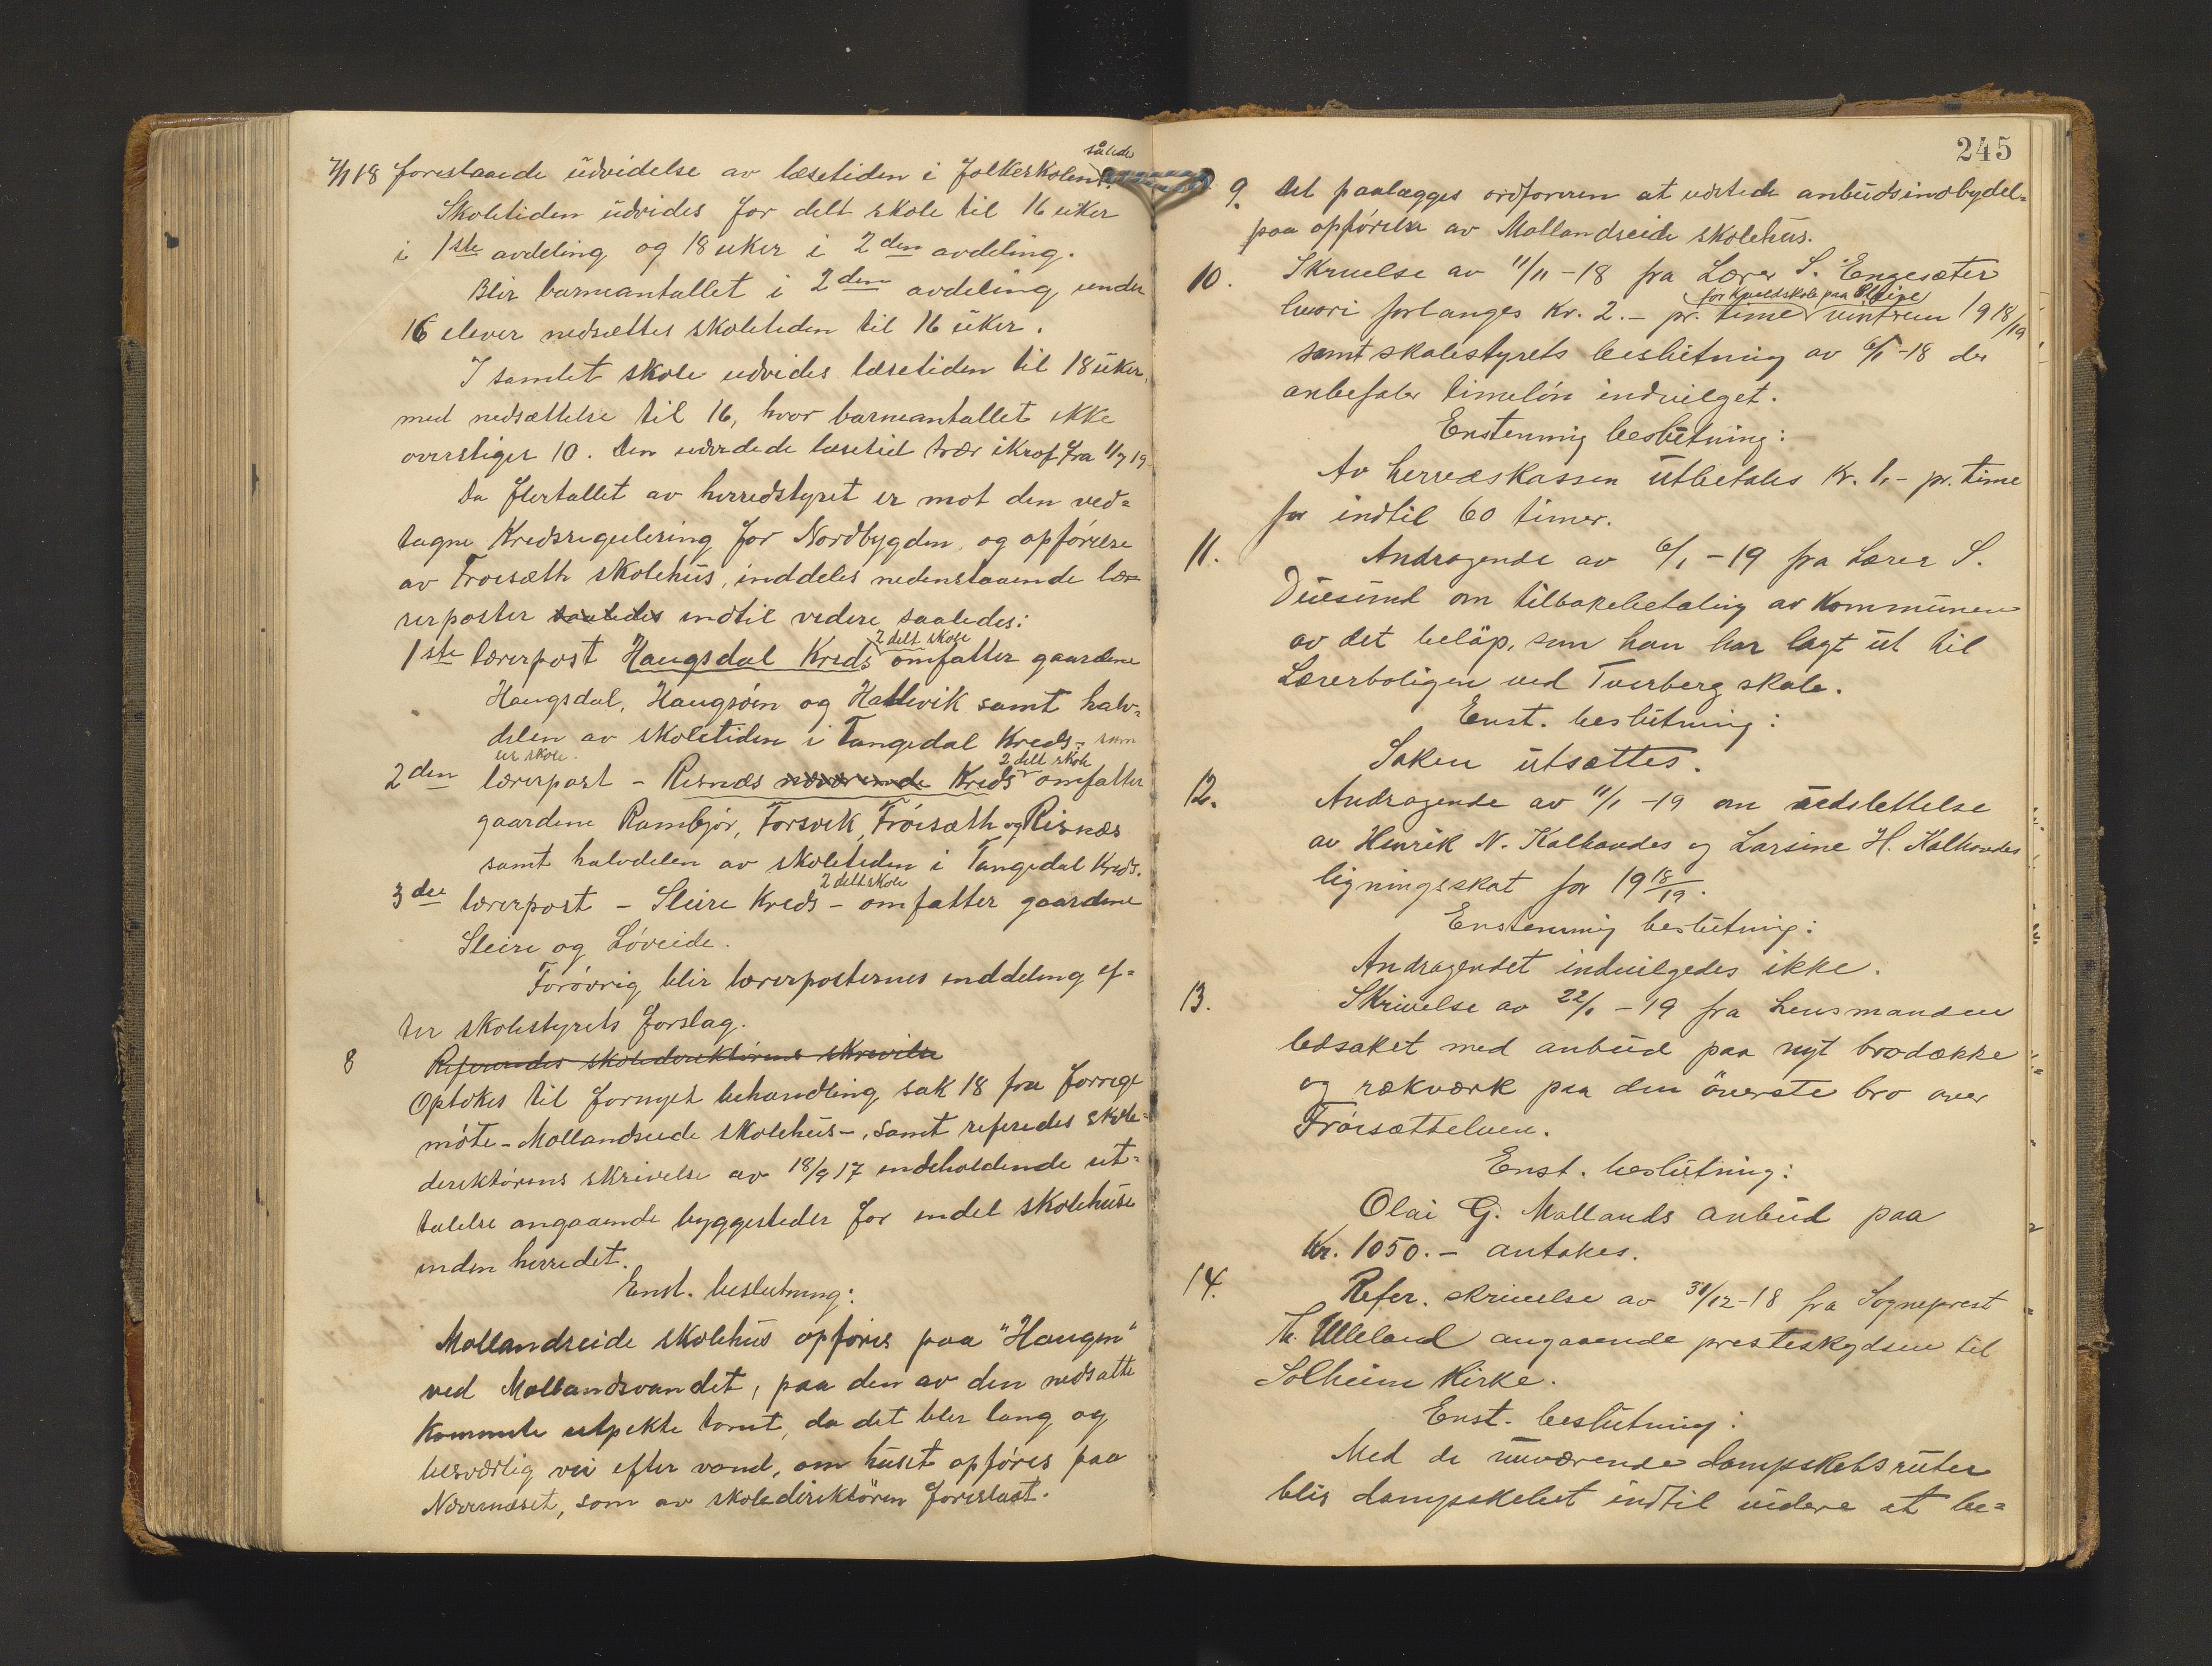 således
7/1 18 forestaaende udvidelse av læsetiden i folkeskolen
Skoletiden udvides for delt skole til 16 uker
i 1ste avdeling og 18 uker i 2den avdeling.
Blir barneantallet i 2den avdeling under
16 elever nedsættes skoletiden til 16 uker.
I samlet skole udvides læsetiden til 18 uker,
med nedsættelse til 16, hvor barneantallet ikke
overstiger 10. Den udvidede læsetid trær ikraf fra 1/7 19
Da flertallet av herredstyret er mot den ved=
tagne Kredsregulering for Nordbygden, og opførelse
av Frøisæth skolehus, inddeles nedenstaaende læ=
rerposter saaledes indtil videre saaledes:
2 delt skole
1ste lærerpost Haugsdal Kreds omfatter gaardene
Haugsdal, Haugsøen og Hallvik samt halv=
delen av skoletiden i Tangedal Kreds - som
ur skole. 2 delt skole
2den lærerpost - Risnæs nærværende Kreds omfatter
gaardene Rambjør, Forsvik, Frøisæth og Risnæs
samt halvdelen av skoletiden i Tangedal Kreds.
2 delt skole
3die lærerpost - Sleire Kreds - omfatter gaardene
Sleire og Løveide.
Forøvrig blir lærerposternes inddeling ef=
ter skolestyrets forslag.
8 Refereredes skoledirektørens skrivelse
Optokes til fornyet behandling sak 18 fra forrige
møte - Mollandseide skolehus -, samt referedes skole=
direktørens skrivelse av 18/9 17 indeholdende ut=
talelse angaaende byggesteder for endel skolehuse
inden herredet.
Enst. beslutning:
Mollandseide skolehus opføres paa "Haugen"
ved Mollandsvandet, paa den av den nedsatte
Kommite utpekte tomt, da det blir lang og
besværlig vei efter vand, om huset opføres paa
Nævernæset, som av skoledirektören foreslaat.
245
9. Det paalægges ordføreren at udstede anbudsindbydel=
paa opførelse av Mollandseide skolehus.
10. Skruelse av 11/11-18 fra Lærer S. Engesæter
for Kveldskole paa Sleire
hvori forlanges Kr. 2.- pr. time vintren 1918/19
samt skolestyrets beslutning av 6/1-18 der
anbefaler timeløn indvilget.
Enstemmig beslutning:
Av herredskassen utbetales Kr. 1,- pr. time
for indtil 60 timer.
11. Andragende av 6/1-19 fra Lærer S.
Duesund om tilbakebetaling av Kommunen
av det beløp, som han har lagt ut til
Lærerboligen ved Tverberg skole.
Enst. beslutning:
Saken utsættes.
12. Andragende av 11/1-19 om utslettelse
av Henrik N. Kalhovdes og Larsine H. Kalhovdes
ligningsskat for 19 18/19.
Enstemmig beslutning:
Andragendet indvilgedes ikke.
13. Skrivelse av 22/1-19 fra Lensmanden
ledsaket med anbud paa nyt brodække
og rækværk paa den överste bro over
Frøisættelven.
Enst. beslutning:
Olai G. Mollands anbud paa
Kr. 1050.- antakes.
14. Refer. skrivelse av 31/12-18 fra Sogneprest
Th. Ulleland angaaende presteskydsen til
Solheim Kirke.
Enst. beslutning:
Med de nuværende dampskibsruter
blir dampskibet indtil videre at be=